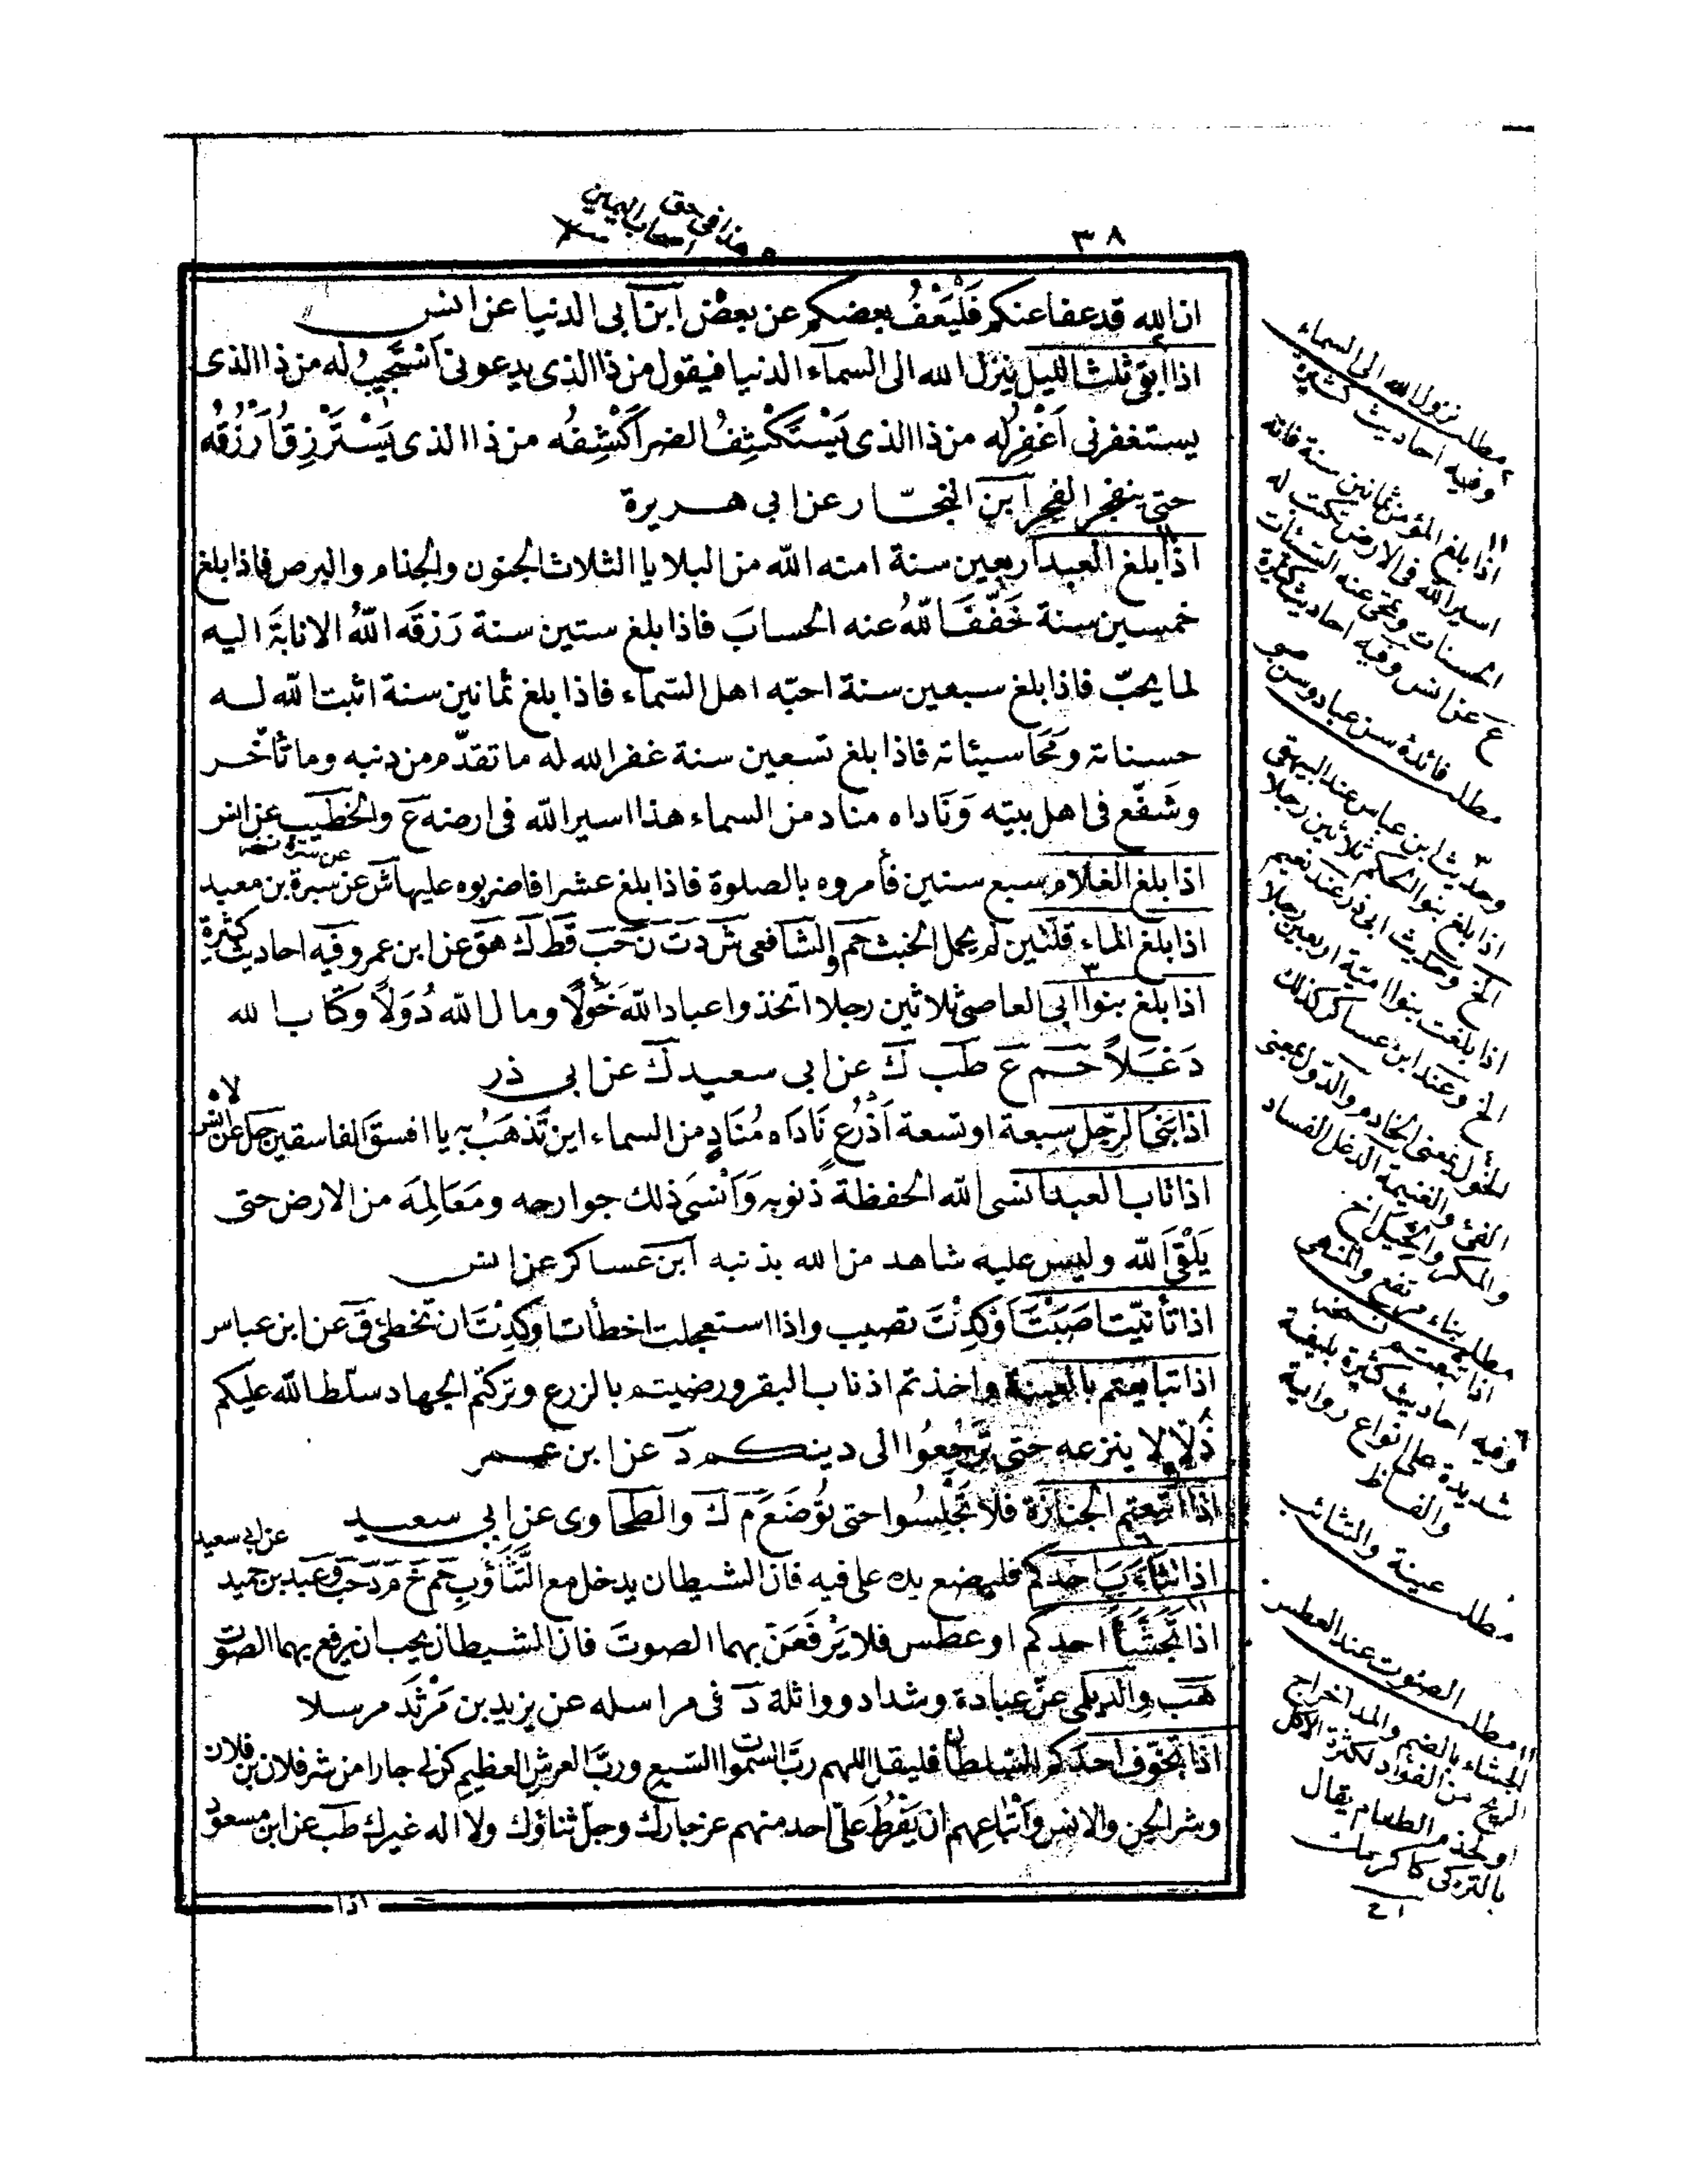 ٣٨
هذا فى حق
اصحاب اليمين
ان الله قد عفا عنكم فَلْيَعْفُ بعضكم عن بعض ابن ابى الدنيا عن انس
اذا بقى ثلث الليل ينزل الله الى السمآء الدنيا فيقول من ذا الذى يدعونى اَسْتَجِيبُ له من ذا الذى
يستغفرنى اَغْفِرْ له من ذا الذى يَسْتَكْشِفُ الضر اَكْشِفُه من ذا الذى يَسْتَرْزِقُ اَرْزُقُه
حتى ينفجر الفجر ابن النجّار عن ابى هريرة
اذا بلغ العبد اربعين سنة امنه الله من البلايا الثلاث الجنون والجذام والبرص فاذا بلغ
خمسين سنة خَفَّفَ اللّٰهُ عنه الحسابَ فاذا بلغ ستين سنة رَزَقَه اللّٰهُ الانابَةَ اليه
لما يحبّ فاذا بلغ سبعين سنة احبّه اهل السّمآء فاذا بلغ ثمانين سنة اثبت الله له
حسناته ومَحَا سيئاته فاذا بلغ تسعين سنة غفر الله له ما تقدّم من ذنبه وما تأخّر
وشَفّع فى اهل بيته وَنَاداه مناد من السماء هذا اسير الله فى ارضه ع والخطيب عن انس
اذا بلغ الغلام سبع سنين فأمروه بالصلوة فاذا بلغ عشرا فاضربوه عليها ش عن سبرة بن معبد
اذا بلغ الماء قلتين لم يحمل الخبث حم والشافعى ش د ت ن حب قط ك هق عن ابن عمر وفيه احاديث كثيرة
اذا بلغ بنوا ابى العاصى ثلاثين رجلا اتخذوا عباد الله خَوَلًا ومال الله دُوَلًا وكتاب الله
دَغَلًا حم ع طب ك عن ابى سعيد ك عن ابى ذر
اذا بَنَى الرّجل سبعة او تسعة اَذْرُعٍ نَادَاه مُنَادٍ من السماء اين تَذهَبُ به يا افسق الفاسقين حل عن انس
اذا تاب العبد انسى الله الحفظة ذنوبه وَاَنْسَى ذلك جوارحه ومَعَالِمَه من الارض حتى
يَلْقَى الله وليس عليه شاهد من الله بذنبه ابن عساكر عن انس
اذا تأنّيت اَصَبْتَ اَوْ كِدْتَ تصيب واذا استعجلت اخطأت او كِدْتَ ان تخطئ ق عن ابن عباس
اذا تبايعتم بالعينة واخذتم اذناب البقر ورضيتم بالزرع وتركتم الجهاد سلّط الله عليكم
ذُلًّا لا ينزعه حتى تَرْجِعُوا الى دينكم د عن ابن عمر
اذا اتبعتم الجنازة فلا تَجْلِسُوا حتى تُوضَعَ م ك والطحاوى عن ابى سعيد
اذا تثاءَبَ احدكم فليضع يده على فيه فان الشيطان يدخل مع التَّثَاؤُبِ حم خ م د حب وعبد بن حميد عن ابى سعيد
اذا تَجَشَّأَ احدكم او عطس فلا يَرْفَعَنَّ بهما الصوتَ فان الشيطان يحب ان يرفع بهما الصوت
هب والديلمى عن عبادة وشداد وواثلة د فى مراسله عن يزيد بن مَرْثَد مرسلا
اذا تخوّف احدكم السلطان فليقل اللهم ربّ السموات السّبع وربّ العرش العظيم كن لى جارا من شر فلان بن فلان
وشر الجن والانس وَاَتْبَاعِهم ان يَفْرُطَ عَلَىّ احد منهم عز جارك وجلّ ثناؤك ولا اله غيرك طب عن ابن مسعود
اذا
مطلب نزول الله الى السماء
وفيه احاديث كثيرة
اذا بلغ المؤمن ثمانين سنة فانه
اسير الله فى الارض تكتب له
الحسنات وتمحى عنه السيئات
ع عن انس وفيه احاديث كثيرة
مطلب فائدة سن عباد
وحديث ابن عباس عند البيهقى
اذا بلغ بنو الحكم ثلاثين رجلا
الخ وحديث ابى ذر عند نعيم
اذا بلغت بنوا امية اربعين رجلا
الخ وعند ابن عساكر كذلك
الخول بمعنى الخادم والدول بمعنى
الفئ والغنيمة الدغل الفساد
والمكر والحيل
مطلب بناء مرتفع والمنهى
اذا تبعتم نسخه
وفيه احاديث كثيرة بليغة
شديدة على انواع رواية
والفاظ
مطلب عينة والتثائب
مطلب الصوت عند العطس
الجشاء بالضم والمد اخراج
الريح من الفؤاد لكثرة الاكل
الطعام يقال
بالتركى